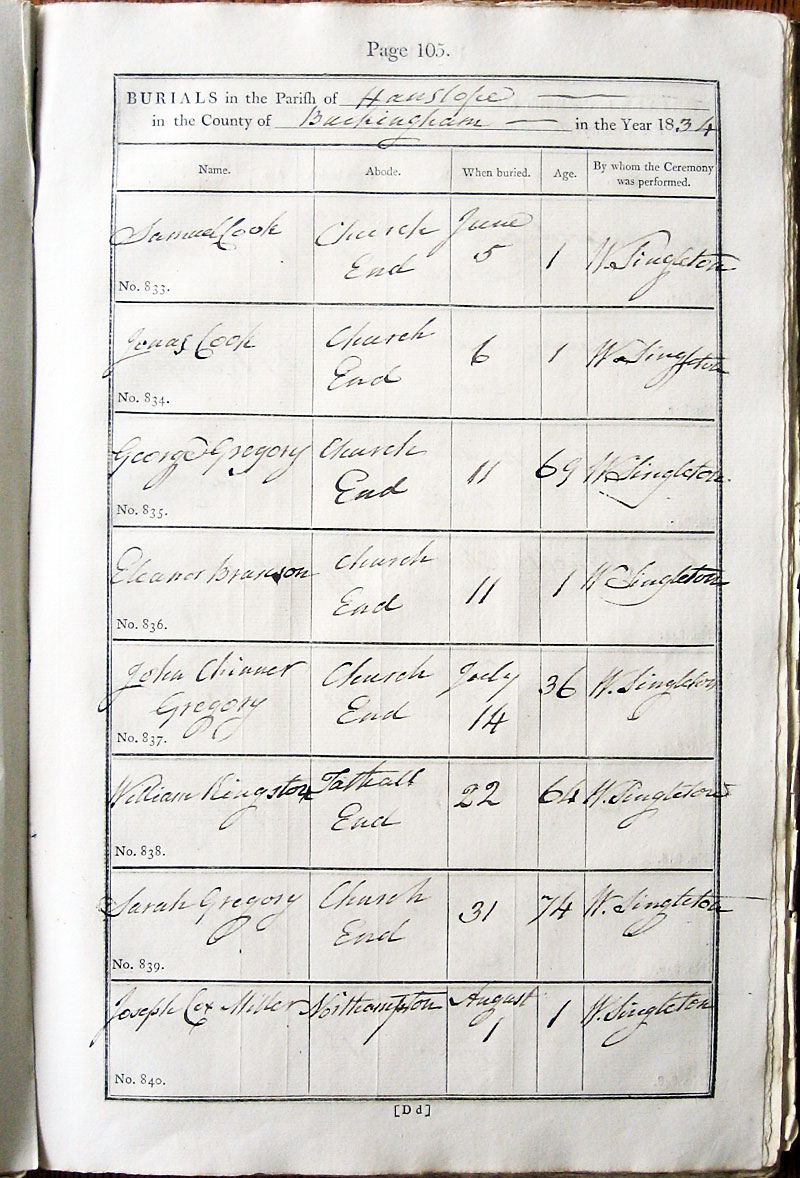 Page 105.
BURIALS in the Parish of Hanslope
in the County of Buckingham in the Year 1834
Name. Abode. When buried. Age. By whom the Ceremony was performed.
Samuel Cook Church End June 5 1 W. Singleton
No. 833.
Jonas Cook Church End 6 1 W. Singleton
No. 834.
George Gregory Church End 11 69 W. Singleton
No. 835.
Eleanor Branson Church End 11 1 W. Singleton
No. 836.
John Chinner Gregory Church End July 14 36 W. Singleton
No. 837.
William Kingston Tathall End 22 64 W. Singleton
No. 838.
Sarah Gregory Church End 31 74 W. Singleton
No. 839.
Joseph Cox Miller Northampton August 1 1 W. Singleton
No. 840.
[Dd]